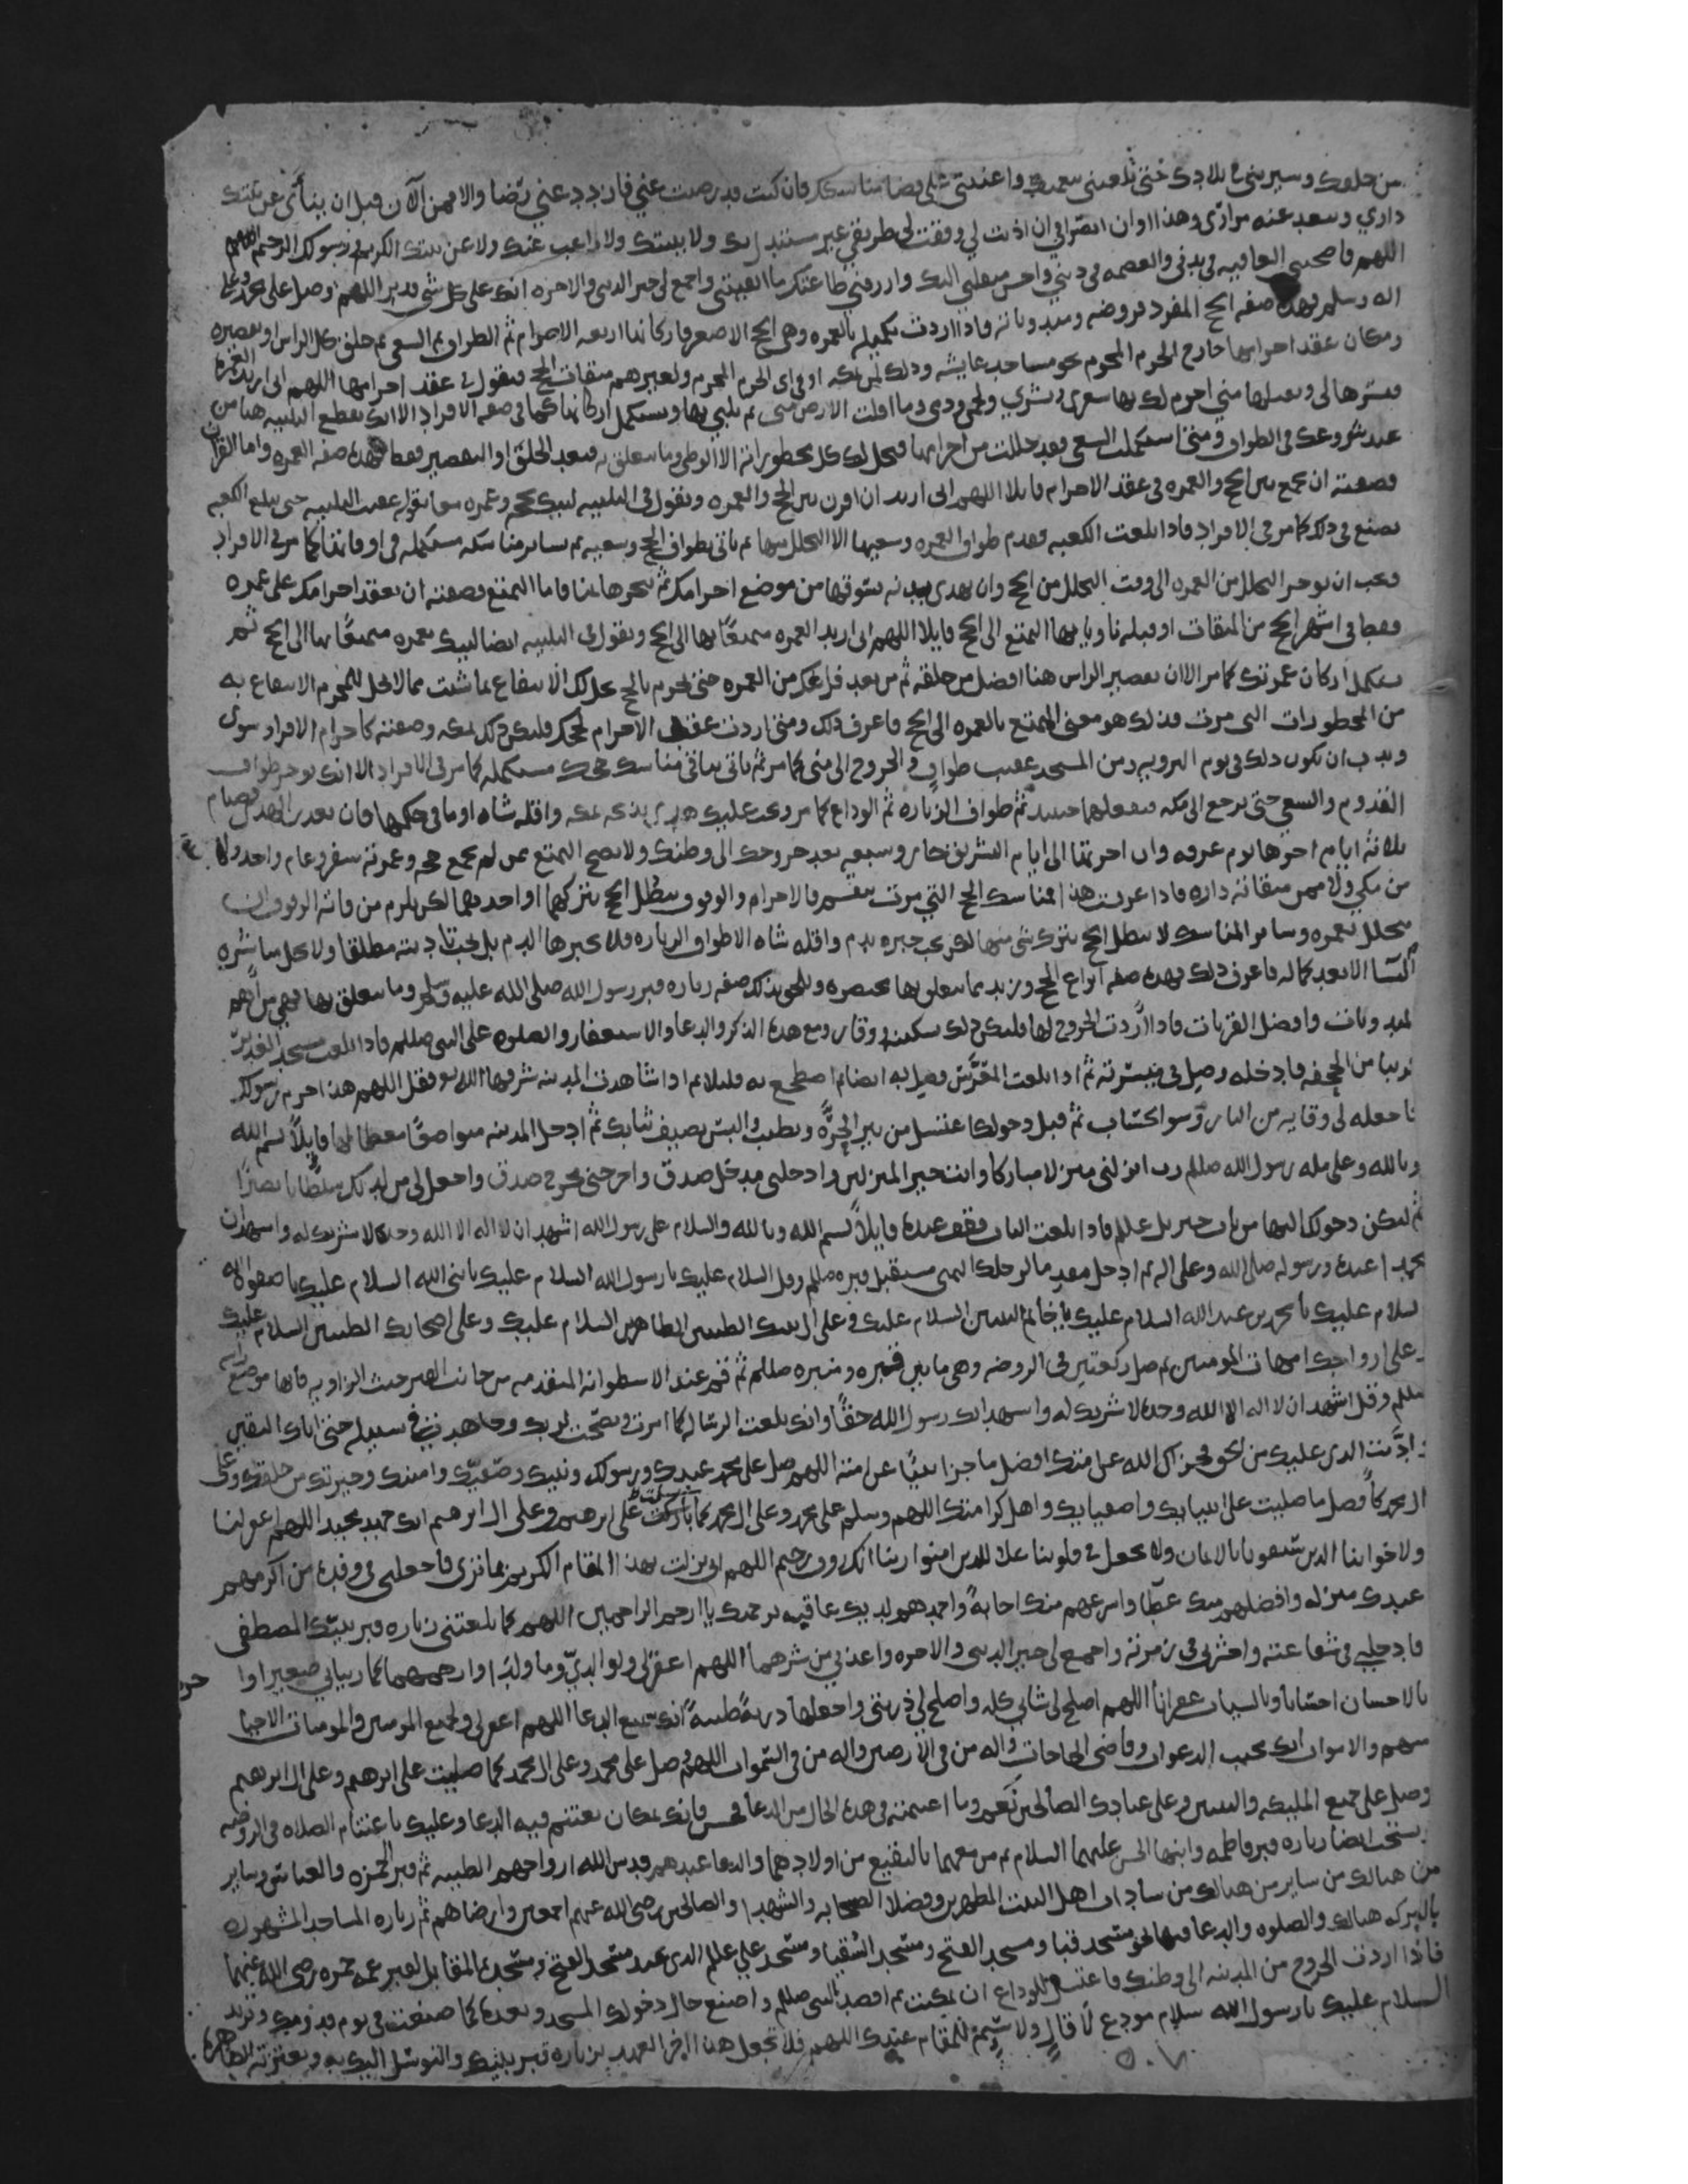 من خلقك وسيرتني في بلادك حتى بلغتني بنعمتك واعنتني على قضا مناسكك فان كنت قد رضيت عني فازدد عني رضا والا فمن الآن قبل ان ينأى عن بيتك
داري ويبعد عنه مزاري وهذا اوان انصرافي ان اذنت لي ووفقت لي طريقي غير مستبدل بك ولا ببيتك ولا راغب عنك ولا عن بيتك الكريم ورسولك الرحيم اللهم
اللهم فاصحبني العافيه في بدني والعصمه في ديني واحسن منقلبي اليك وارزقني طاعتك ما ابقيتني واجمع لي خير الدنيا والاخره انك على كل شي قدير اللهم وصل على محمد وعلى
اله وسلم فهذه صفه الحج المفرد فروضه ومندوباته فاذا اردت تكميله بالعمره وهي الحج الاصغر فاركانها اربعه الاحرام ثم الطواف ثم السعي ثم حلق كل الراس او تقصيره
ومكان عقد احرامها خارج الحرم المحرم نحو مساجد عايشه وذلك لمن بمكه او في اي الحرم المحرم ولغيرهم ميقات الحج فيقول في عقد احرامها اللهم اني اريد العمره
فيسرها لي وتقبلها مني احرم لك بها شعري وبشري ولحمي ودمي وما اقلت الارض مني ثم يلبي بها ويستكمل اركانها كما في صفه الافراد الا انك تقطع التلبيه هنا من
عند شروعك في الطواف ومتى استكملت السعي فقد حللت من احرامها فيحل لك كل محظوراته الا الوطي وما يتعلق به فبعد الحلق او التقصير فقط فهذه صفه العمره واما القران
فصفته ان تجمع بين الحج والعمره في عقد الاحرام قايلا اللهم اني اريد ان اقرن بين الحج والعمره وتقول في التلبيه لبيك بحجه وعمره معا بقوله عقيب التلبيه حتى يبلغ الكعبه
تصنع في ذلك كما مر في الافراد فاذا بلغت الكعبه فقدم طواف العمره وسعيها الا التحلل منها ثم تاتي بطواف الحج وسعيه ثم بساير مناسكه مستكمله في اوقاتها كما مر في الافراد
فيجب ان توخر التحلل من العمره الى وقت التحلل من الحج وان تهدي ببدنه تسوقها من موضع احرامك ثم تنحرها بمنا فاما التمتع فصفته ان تعقد احرامك على عمره
فقط في اشهر الحج من الميقات او قبله ناويا بها التمتع الى الحج قايلا اللهم اني اريد العمره متمتعًا بها الى الحج وتقول في التلبيه ايضا لبيك بعمره متمتعًا بها الى الحج ثم
تستكمل اركان عمرتك كما مر الا ان تقصير الراس هنا افضل من حلقه ثم من بعد فراغك من العمره حتى تحرم بالحج يحل لك الانتفاع بما شئت مما لا يحل للمحرم الانتفاع به
من المحظورات التي مرت فذلك هو معنى التمتع بالعمره الى الحج فاعرف ذلك ومتى اردت عقد الاحرام لحجك فليكن ذلك بمكه وصفته كاحرام الافراد سوى
وندب ان يكون ذلك في يوم الترويه ومن المسجد عقيب طواف والخروج الى منى كما مر ثم تاتي بباقي مناسك حجك مستكمله كما مر في الافراد الا انك توخر طواف
القدوم والسعي حتى ترجع الى مكه فتفعلهما حينيذ ثم طواف الزياره ثم الوداع كما مر ويجب عليك هدي تذبحه بمكه واقله شاه او ما في حكمها فان تعذر الهدي فصيام
ثلاثه ايام اخرها يوم عرفه وان اخرتها الى ايام التشريق جاز وسبعه بعد خروجك الى وطنك ولا يصح التمتع ممن لم يجمع حجه وعمرته سفر وعام واحد ولا
من مكي ولا ممن ميقاته داره فاذا عرفت هذا فمناسك الحج التي مرت تنقسم فالاحرام والوقوف يبطل الحج بتركهما او احدهما لكن يلزم من فاته الوقوف ان
يتحلل بعمره وساير المناسك لا يبطل الحج بترك شي منها لكن يجب جبره بدم واقله شاه الا طواف الزياره فلا يجبرها الدم بل يجب تاديته مطلقا ولا يحل مباشره
النسا الا بعد كماله فاعرف ذلك فهذه صفه انواع الحج وزبد مما يتعلق بها مختصره ويلحق بذلك صفه زياره قبر رسول الله صلى الله عليه وسلم وما يتعلق بها فهي من اهم
المندوبات وافضل القربات فاذا اردت الخروج لها فليكن ذلك بسكينه ووقار ومع هذه الذكر والدعا والاستغفار والصلوه على النبي صللم فاذا بلغت مسجد الغدير
قريبا من الجحفه فادخله وصل في ميسرته ثم اذا بلغت المعرَّس فصل به ايضا ثم اضطجع به قليلا ثم اذا شاهدت المدينه شرفها الله فقل اللهم هذا حرم رسولك
فاجعله لي وقايه من النار وسو الحساب ثم قبل دخولك اغتسل من بير الحرَّه وتطيب والبس نضيف ثيابك ثم ادخل المدينه متواضعًا معظما لها قايلاً بسم الله
وبالله وعلى مله رسول الله صللم رب انزلني منزلا مباركا وانت خير المنزلين وادخلني مدخل صدق واخرجني مخرج صدق واجعل لي من لدنك سلطانا نصيرا
ثم ليكن دخولك اليها من باب جبريل عللم فاذا بلغت الباب فقف عنده قايلاً بسم الله وبالله والسلام على رسول الله اشهد ان لا اله الا الله وحده لا شريك له واشهد ان
محمدا عبده ورسوله صلى الله وعلى اله ثم ادخل مقدما لرجلك اليمنى مستقبل قبره صللم وقل السلام عليك يا رسول الله السلام عليك يا نبي الله السلام عليك يا صفوه الله
السلام عليك يا محمد بن عبد الله السلام عليك يا خاتم النبيين السلام عليك وعلى ال بيتك الطيبين الطاهرين السلام عليك وعلى اصحابك الطيبين السلام عليك
وعلى ازواجك امهات المومنين ثم صل ركعتين في الروضه وهي ما بين قبره ومنبره صللم ثم قم عند الاسطوانه المتقدمه من جانب القبر حيث الزاويه فانها موضع راسه
صللم وقل اشهد ان لا اله الا الله وحده لا شريك له واشهد انك رسول الله حقًا وانك بلغت الرساله كما امرت ونصحت لربك وجاهدت في سبيله حتى اتاك اليقين
واديت الذي عليك من الحق فجزاك الله عن امتك افضل ما جزا نبيًا عن امته اللهم صل على محمد عبدك ورسولك ونبيك وصفيك وامينك وخيرتك من خلقك وعلى
ال محمد كافضل ما صليت على انبيايك واصفيايك واهل كرامتك اللهم وسلم على محمد وعلى ال محمد كما باركت على ابرهيم وعلى ال ابرهيم انك حميد مجيد اللهم اغفر لنا
ولاخواننا الذين سبقونا بالايمان ولا تجعل في قلوبنا غلا للذين امنوا ربنا انك روف رحيم اللهم اني نزلت بهذا المقام الكريم بما ترى فاجعلني في وفده من اكرمهم
عبدك منزله وافضلهم منك عطا واسرعهم منك اجابةً واحمدهم لديك عاقبه برحمتك يا ارحم الراحمين اللهم كما بلغتني زياره قبر نبيك المصطفى
فادخلني في شفاعته واحشرني في زمرته واجمع لي خير الدنيا والاخره واعذني من شرهما اللهم اغفر لي ولوالديّ وما ولدا وارحمهما كما ربياني صغيرا وا
بالاحسان احسانا وبالسيات غفرانا اللهم اصلح لي شاني كله واصلح لي ذريتي واجعلها ذريةً طيبةً انك سميع الدعا اللهم اغفر لي ولجميع المومنين والمومنات الاحيا
منهم والاموات انك مجيب الدعوات وقاضي الحاجات واله من في الارضين واله من في السموات اللهم صل على محمد وعلى ال محمد كما صليت على ابرهيم وعلى ال ابرهيم
وصل على جميع المليكه والنبيين وعلى عبادك الصالحين نعم وما اغتنمته في هذه الحال من الدعا فحسن فانك بمكان يغتنم فيه الدعا وعليك باغتنام الصلاه في الروضه
ويستحب ايضا زياره قبر فاطمه وابنها الحسن عليهما السلام ثم من معهما بالبقيع من اولادهما والدعا عندهم قدس الله ارواحهم الطيبه ثم قبر الحمزه والعباس وساير
من هنالك من ساير من هنالك من سادات اهل البيت المطهرين وفضلا الصحابه والشهدا والصالحين رضي الله عنهم اجمعين وارضاهم ثم زياره المساجد المشهوره
بالبركه هنالك والصلوه والدعا فيها نحو مسجد قبا ومسجد الفتح ومسجد السقيا ومسجد علي عللم الذي عند مسجد الفتح ومسجده المقابل لقبر عمه حمزه رضي الله عنهما
فاذا اردت الخروج من المدينه الى وطنك فاغتسل للوداع ان تمكنت ثم اقصد النبي صللم واصنع حال دخولك المسجد وبعده كما صنعت في يوم قدومك وتزيد
السلام عليك يا رسول الله سلام مودع لا قالٍ ولا سئم للمقام عندك اللهم فلا تجعل هذا اخر العهد بزياره قبر نبيك والتوسل اليك به وبعترته الطاهره